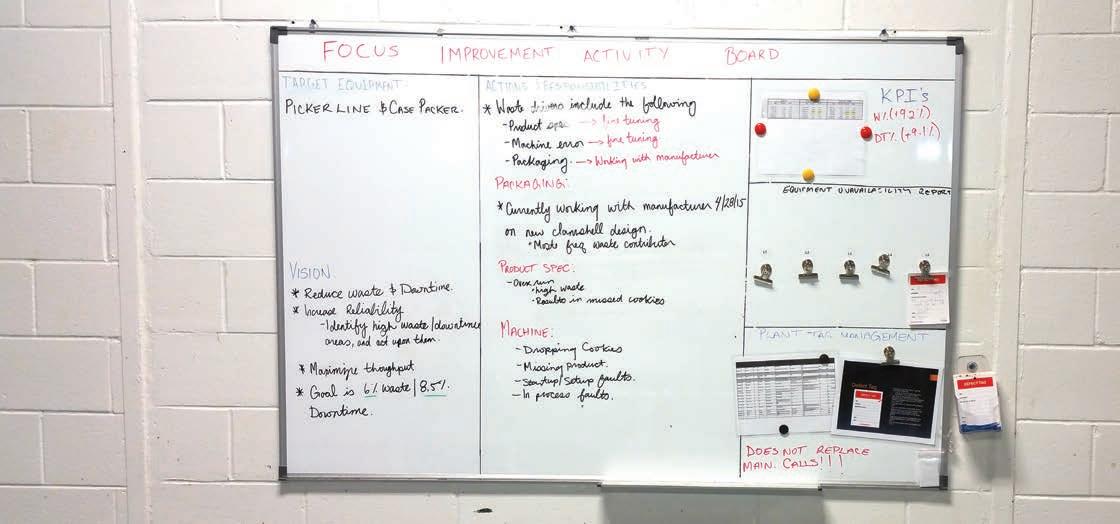 FOCUS IMPROVEMENT ACTIVITY BOARD
TARGET EQUIPMENT.
PICKER LINE & CASE PACKER.
VISION.
* Reduce waste & Downtime.
* Increase Reliability
- Identify high waste/downtime
areas, and act upon them.
* Maximize thoughput
* Goal is 6% waste / 8.5%.
Downtime.
ACTIONS & RESPONSIBILITIES
* Waste drivers include the following
- Product spec → fine tuning
- Machine error → fine tuning
- Packaging. → Working with manufacturer
PACKAGING:
* Currently working with manufacturer 4/28/15
on new clamshell design.
* Most freq waste contributor
PRODUCT SPEC:
- Over run
• high waste
• Results in missed cookies
MACHINE:
- Dropping Cookies
- Missing product.
- Startup/Setup faults.
- In process faults.
KPI's
W% (+92%)
DT% (+9.1%)
EQUIPMENT UNAVAILABILITY REPORT
PLANT-TAG MANAGEMENT
Defect Tag
DEFECT TAG
DOES NOT REPLACE
MAIN. CALLS!!!